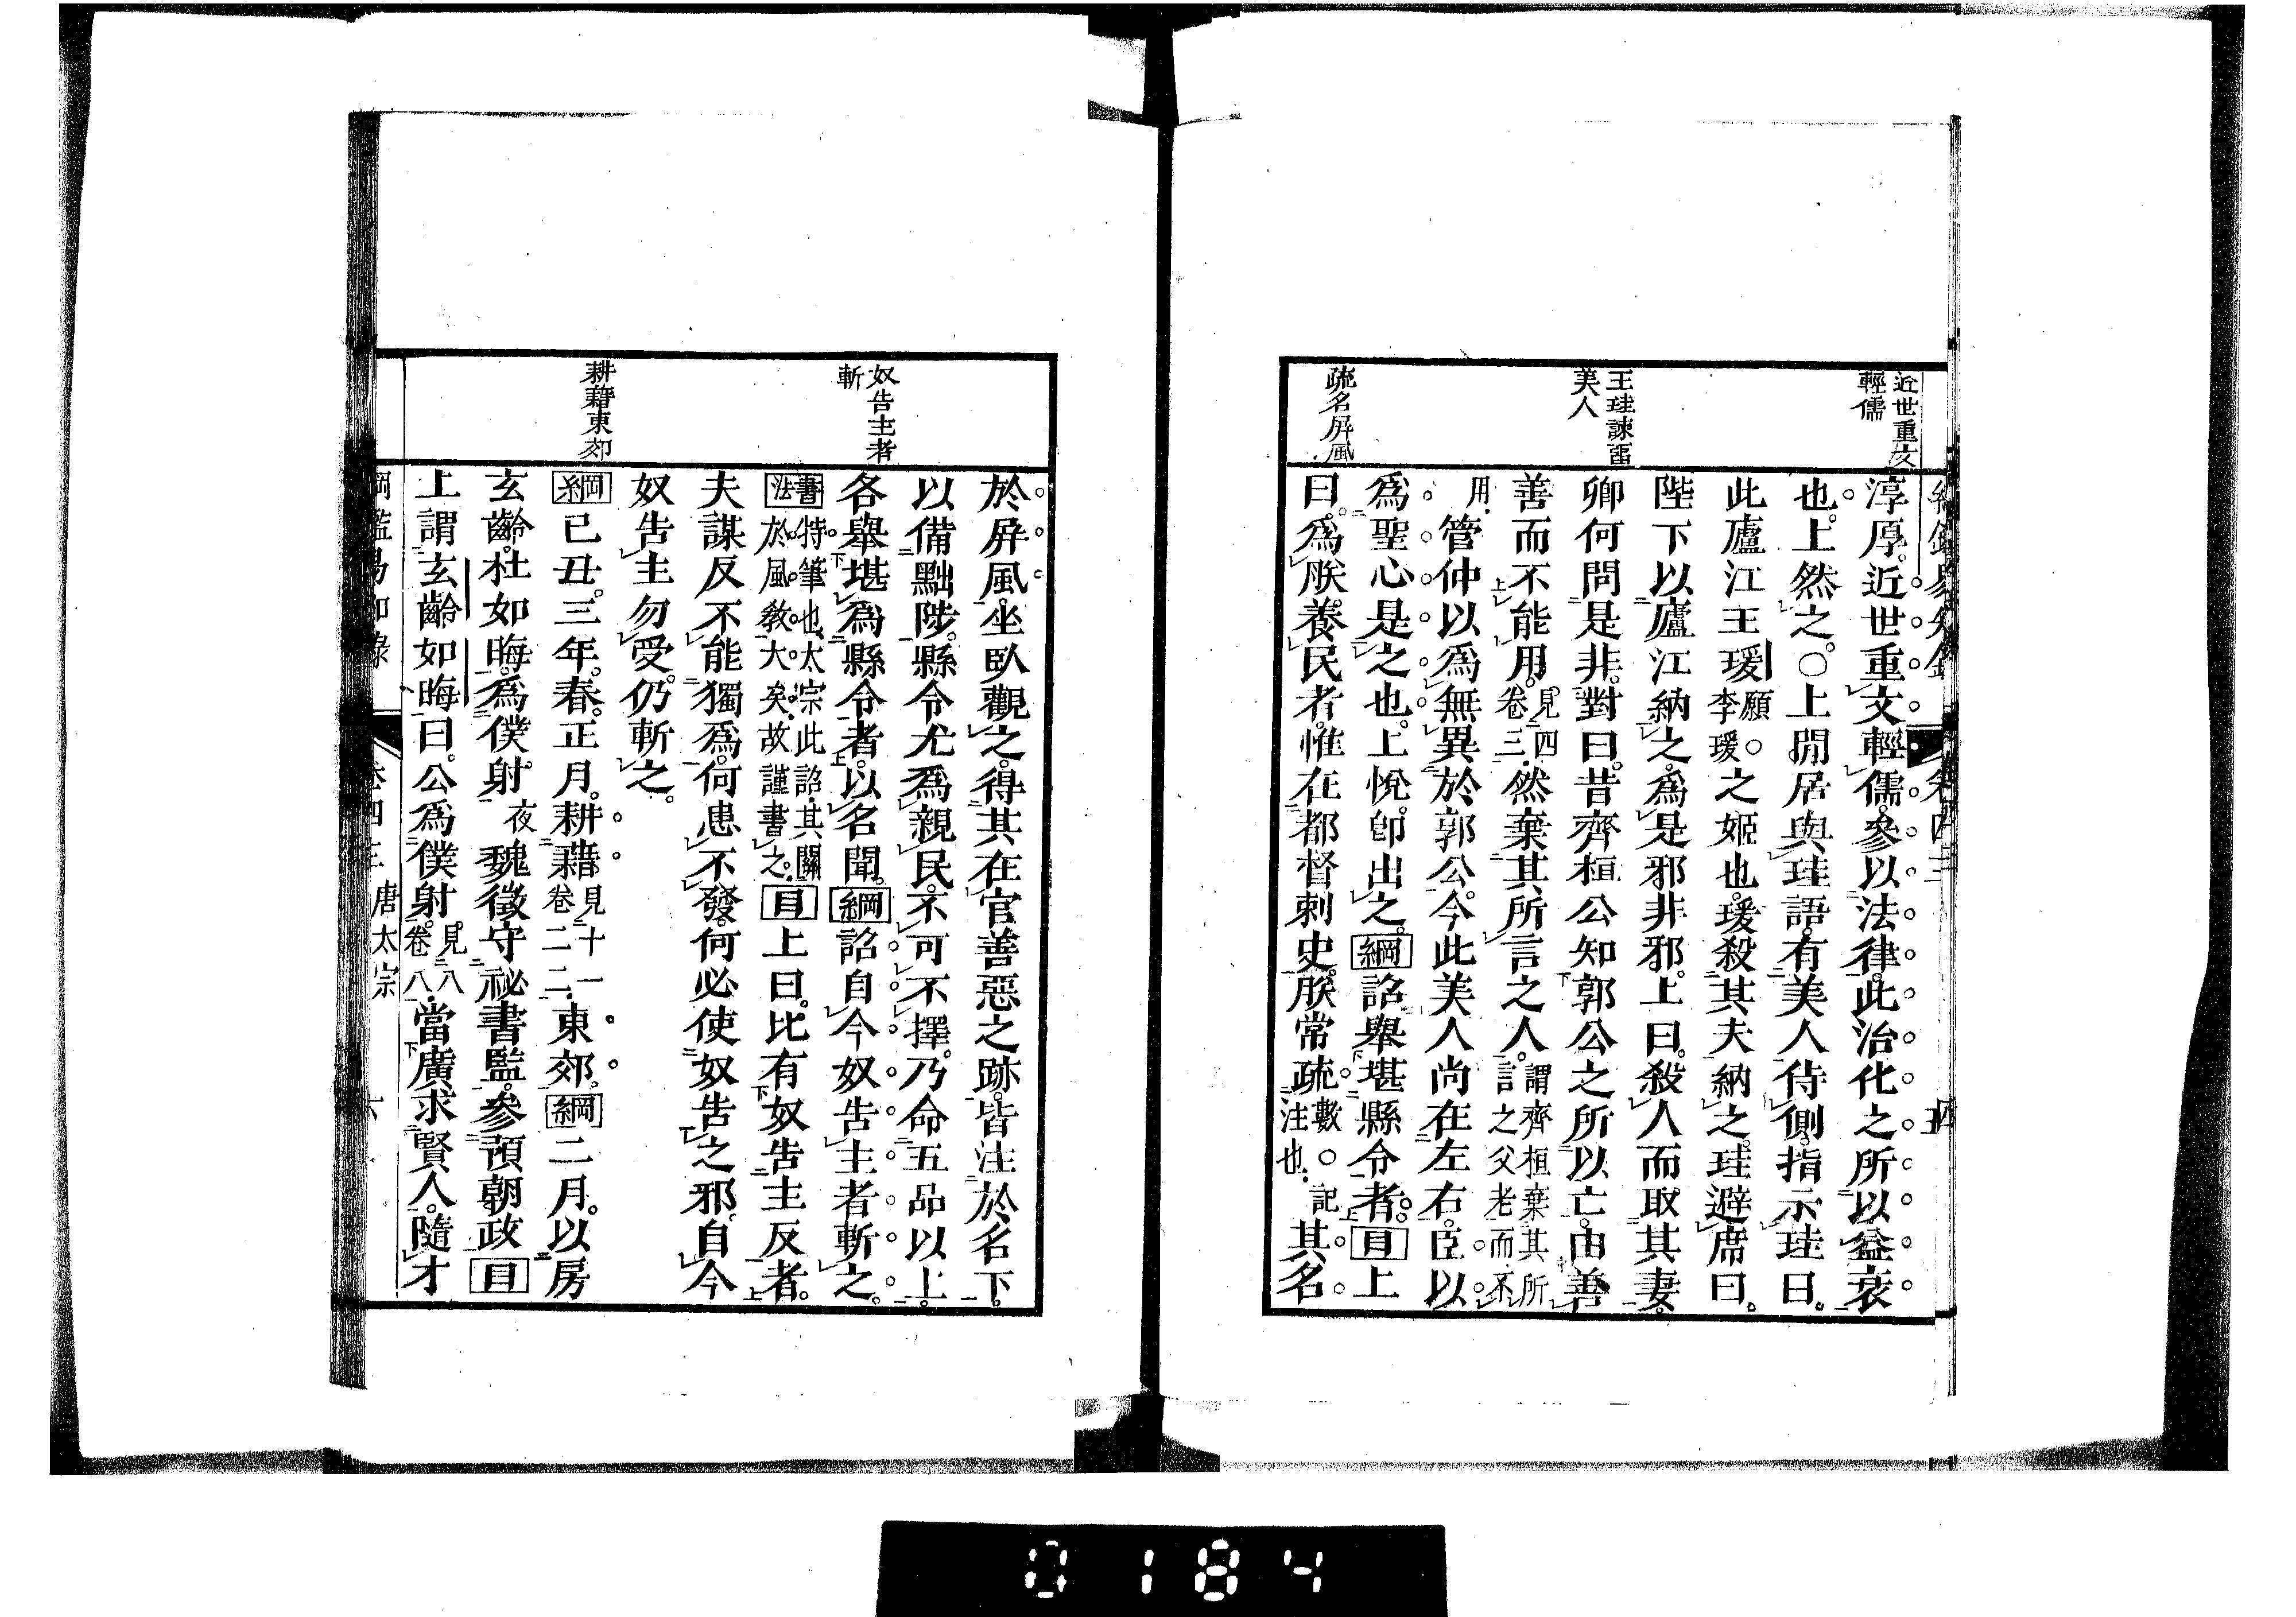 近世重文
輕儒
王珪諫畱
美人
疏名屏風
淳厚。近世重文輕儒。參以法律。此治化之所以益衰
也。上然之。○上閒居與珪語。有美人侍側。指示珪曰。
此廬江王瑗願○李瑗之姬也。瑗殺其夫納之。珪避席曰。
陛下以廬江納之。爲是邪非邪。上曰。殺人而取其妻。
卿何問是非。對曰。昔齊桓公知郭公之所以亡。由善
善而不能用。見四卷三然棄其所言之人。謂齊桓棄其所言之父老而不
用管仲以爲無異於郭公。今此美人尚在左右。臣以
爲聖心是之也。上悅。卽出之。綱詔舉堪縣令者。目上
曰。爲朕養民者。惟在都督刺史。朕常疏數○記注也其名
奴告主者
斬
耕藉東郊
於屏風。坐臥觀之。得其在官善惡之跡。皆注於名下。
以備黜陟。縣令尤爲親民。不可不擇。乃命五品以上。
各舉堪爲縣令者。以名聞。綱詔自今奴告主者斬之。
書法特筆也。太宗此詔。其關於風敎大矣。故謹書之。目上曰。比有奴告主反者。
夫謀反不能獨爲。何患不發。何必使奴告之邪。自今
奴告主勿受。仍斬之。
綱已丑。三年。春。正月。耕藉見十一卷二二東郊。綱二月。以房
玄齡。杜如晦。爲僕射夜魏徵守祕書監。參預朝政目
上謂玄齡如晦曰。公爲僕射。見八卷八當廣求賢人。隨才
綱鑑易知錄 卷四三 唐太宗 六